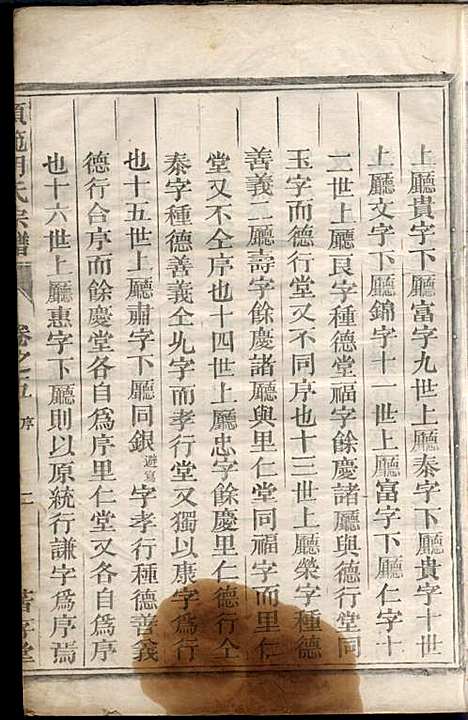 上廳貴字下廳富字九世上廳泰字下廳貴字十世
上廳文字下廳錦字十一世上廳富字下廳仁字十
二世上廳艮字種德堂福字餘慶諸廳與德行堂同
玉字而德行堂又不同序也十三世上廳榮字種德
善義二廳壽字餘慶諸廳與里仁堂同福字而里仁
堂又不仝序也十四世上廳忠字餘慶里仁德行仝
泰字種德善義仝𠃔字而孝行堂又獨以康字為行
也十五世上廳肅字下廳同銀避寫字孝行種德善義
德行台序而餘慶堂各自為序里仁堂又各自為序
也十六世上廳惠字下廳則以原統行謙字為序焉
胡氏宗譜 卷之五 序 二